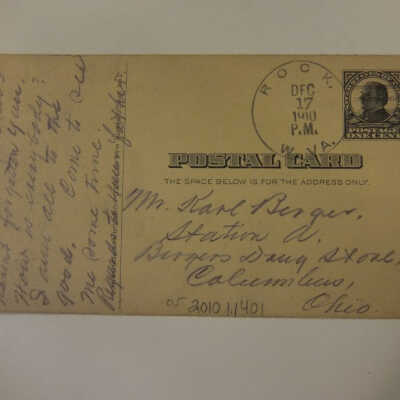 ROCK,
DEC
17
1910
P.M.
W. VA.
POSTAGE
ONE CENT
POSTAL CARD
THE SPACE BELOW IS FOR THE ADDRESS ONLY.
Mr. Karl Berger,
Station A.
Bergers Drug Store,
Columbus,
Ohio.
05 2010 1.1401
forgotten you.
How is everybody?
I am all to the
good. Come to see
me some time
Regards to